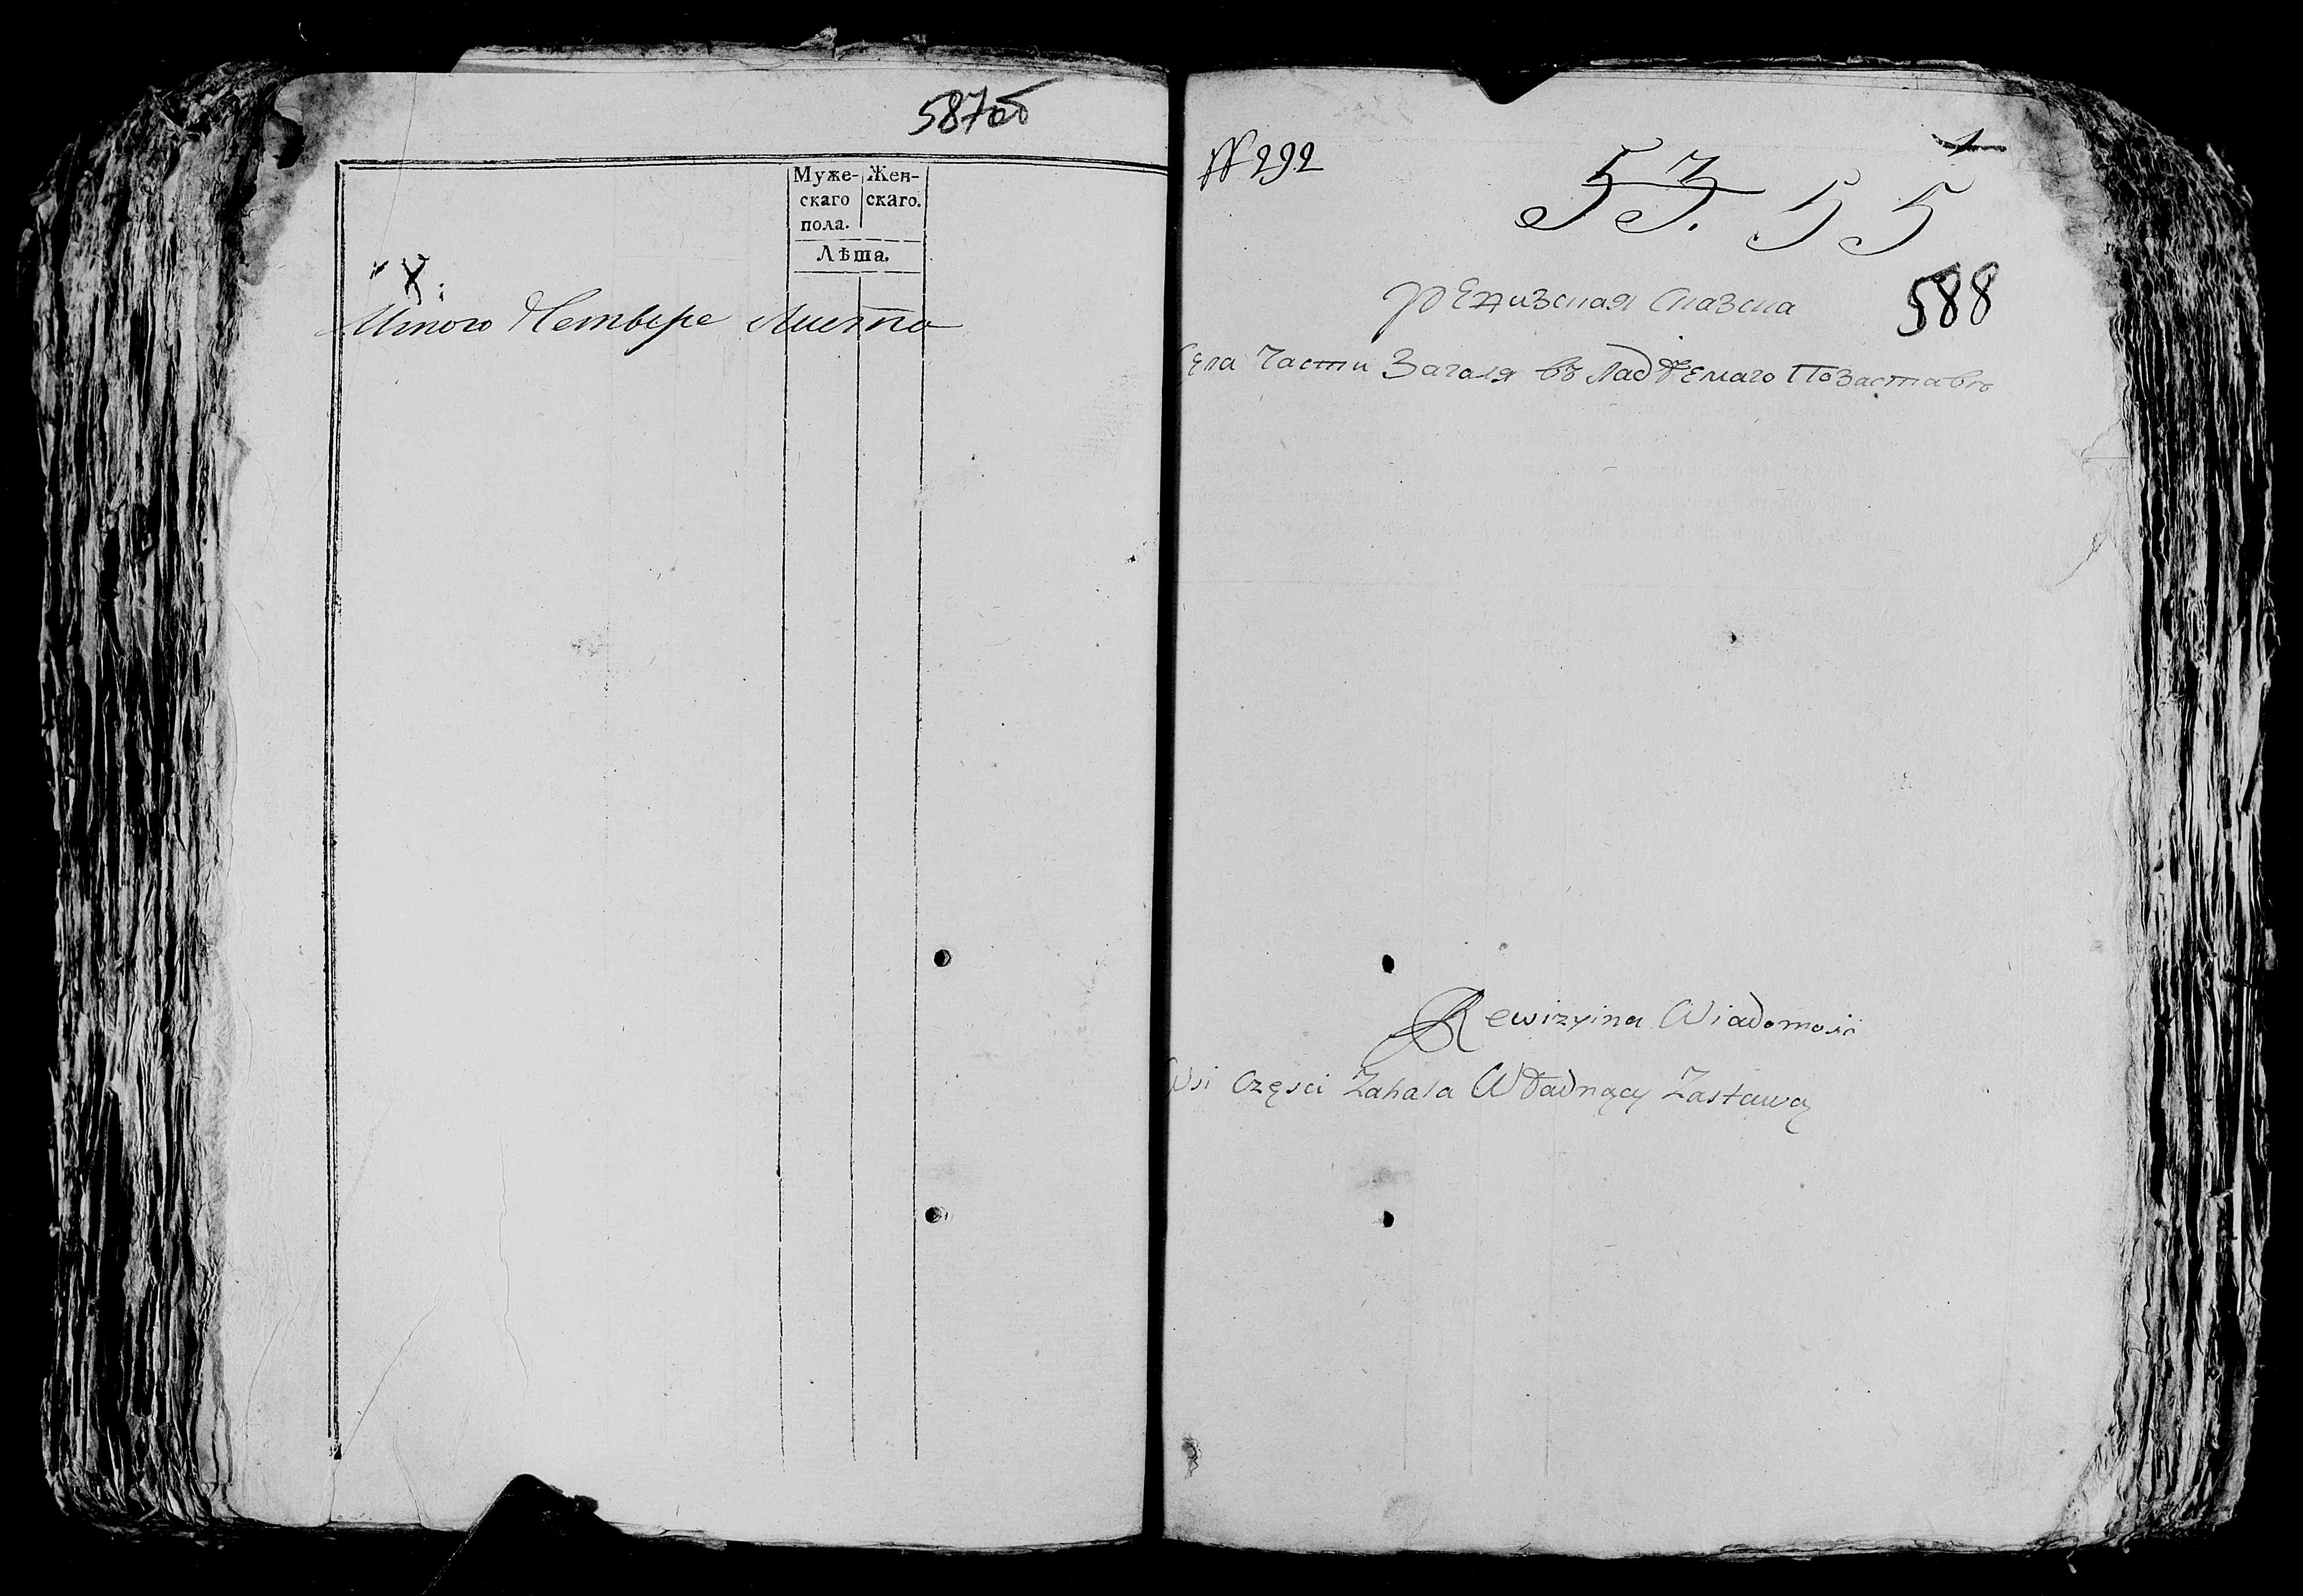 587об
Муже- Жен-
скаго скаго.
пола.
Лѣта.
Итого Четыре Листа
№ 292
53. 55
588
Ревизская Сказка
Села Части Загаля въ Лад Ѣемаго Позаставѣ
Rewizyina Wiadomosc
Wsi Częsci Zahala Władnący Zastawą